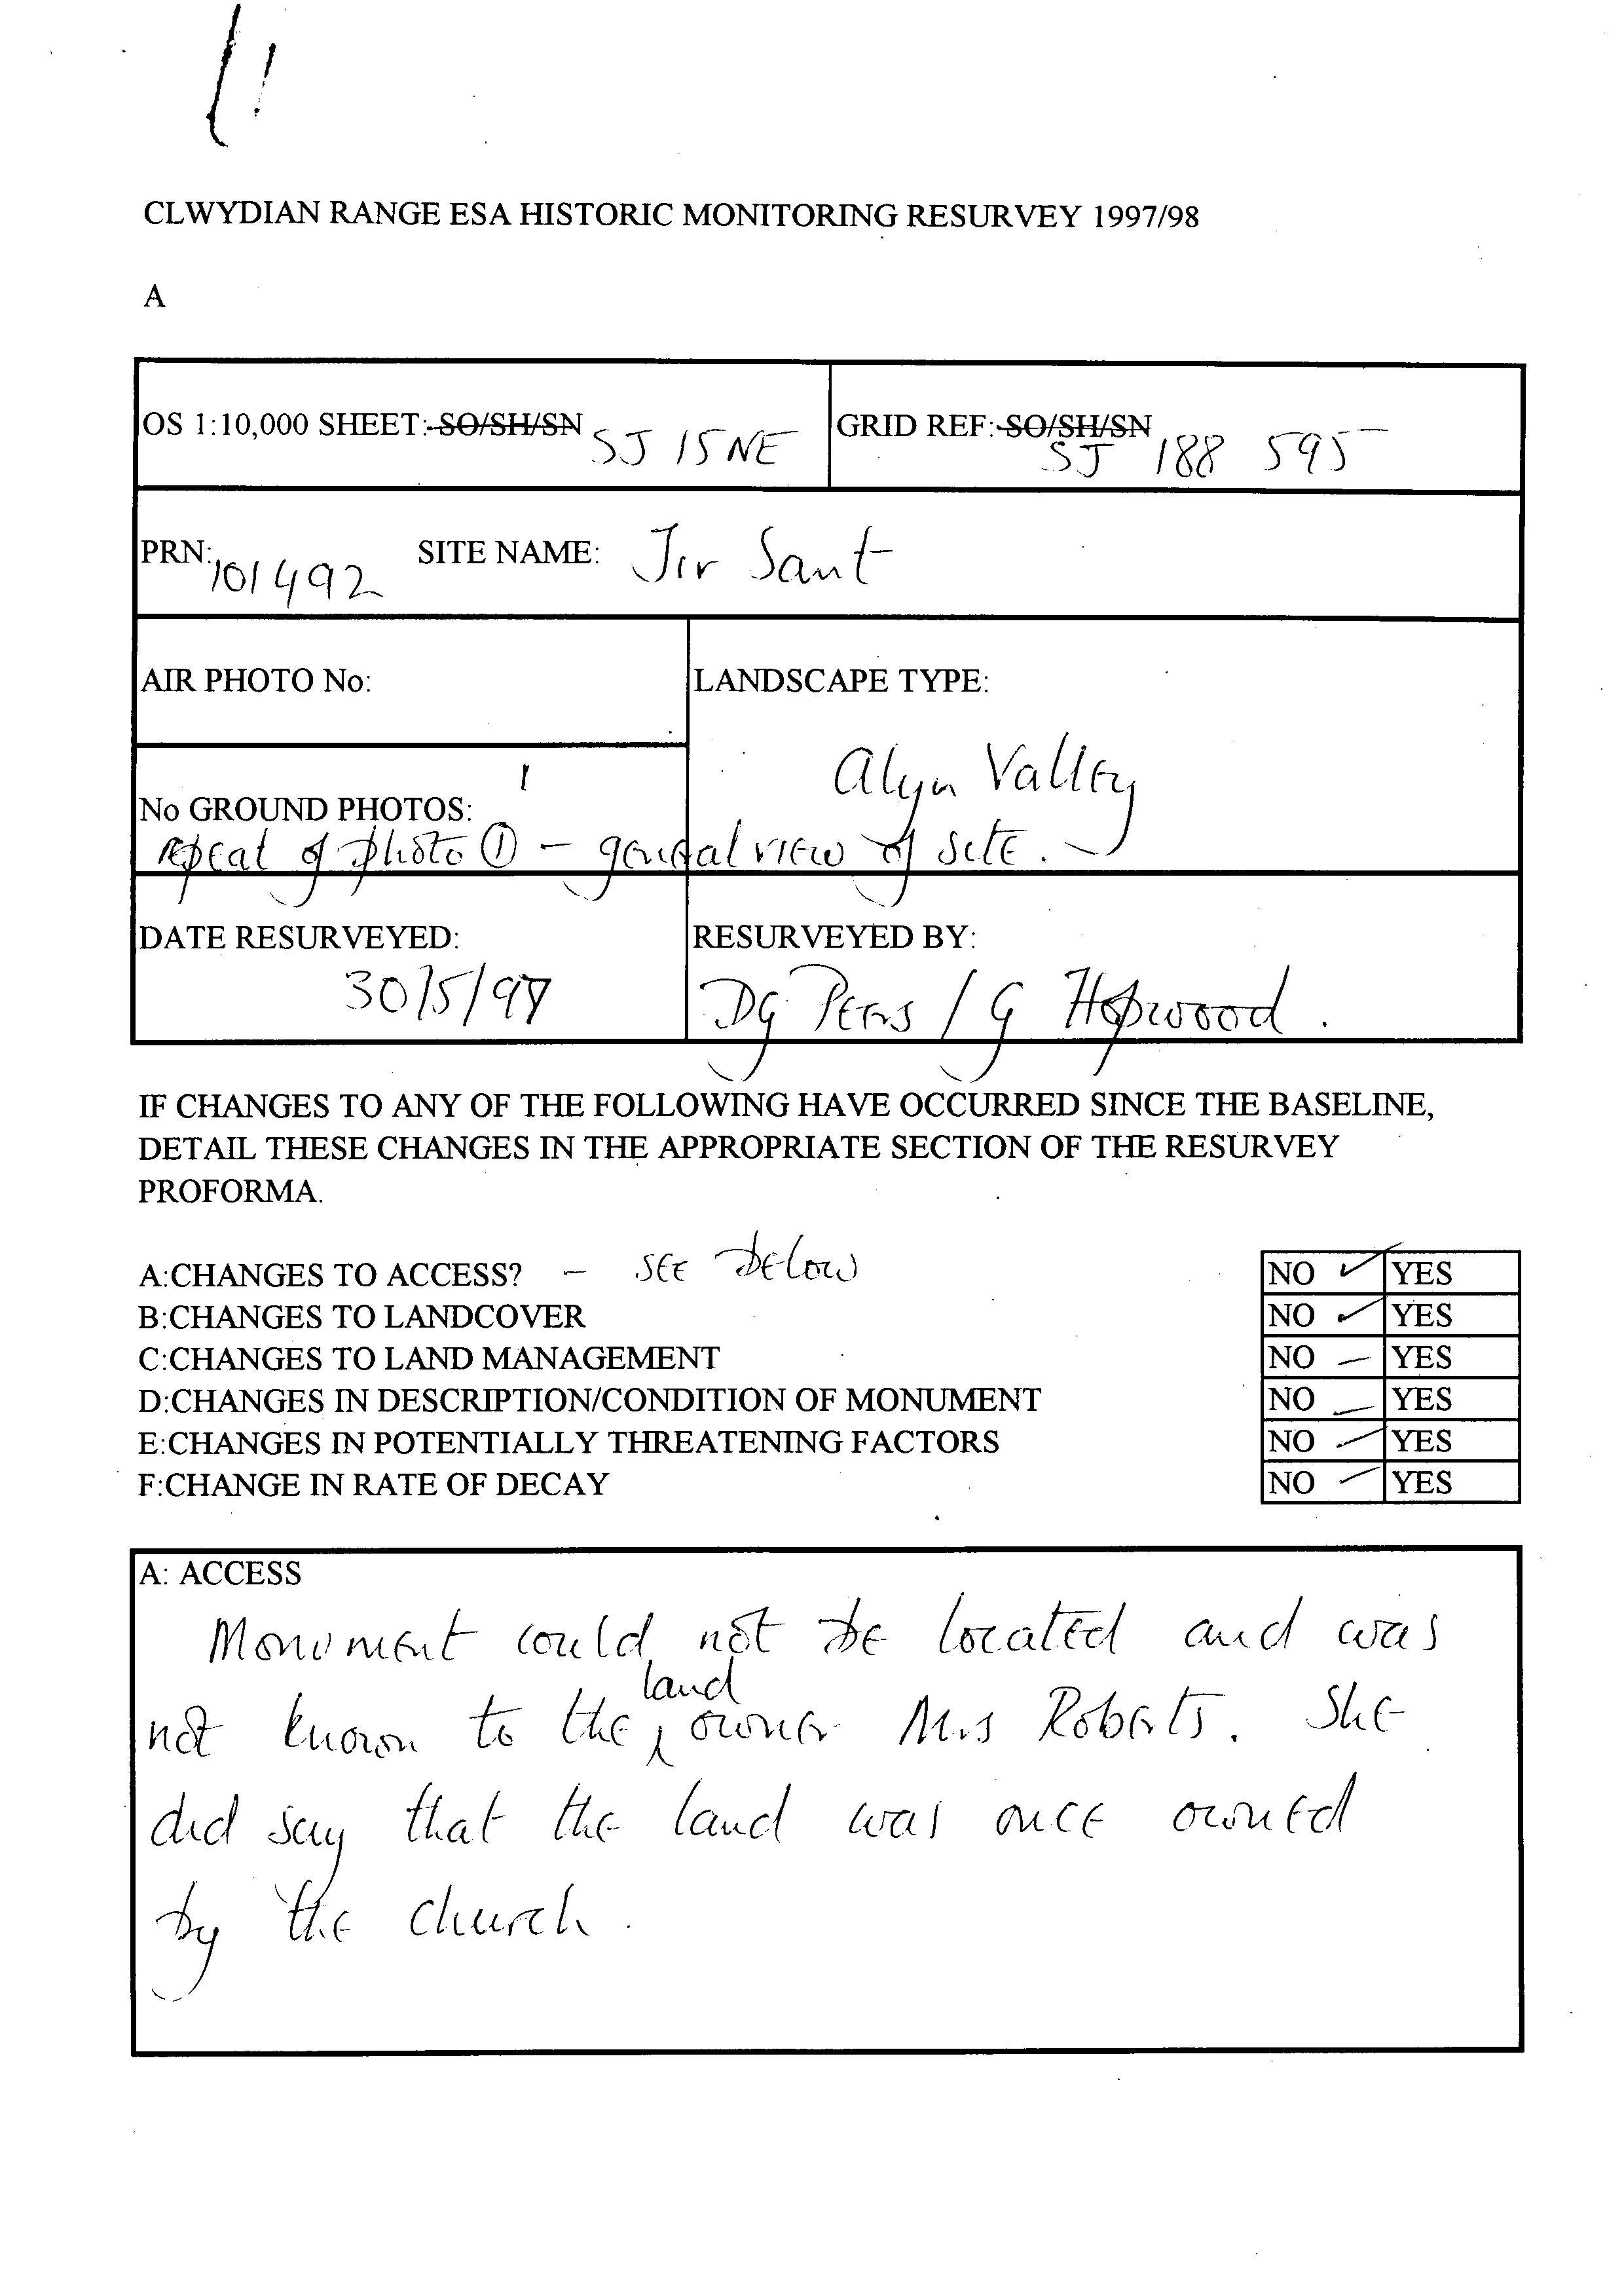 CLWYDIAN RANGE ESA HISTORIC MONITORING RESURVEY 1997/98
A
OS 1:10,000 SHEET: SO/SH/SN SJ 15 NE
GRID REF: SO/SH/SN SJ 188 595
PRN: 101492 SITE NAME: Tir Sant
AIR PHOTO No:
LANDSCAPE TYPE:
Alyn Valley
No GROUND PHOTOS: 1
repeat of photo ① - general view of site.
DATE RESURVEYED:
30/5/97
RESURVEYED BY:
DG Peers / G Hopwood.
IF CHANGES TO ANY OF THE FOLLOWING HAVE OCCURRED SINCE THE BASELINE,
DETAIL THESE CHANGES IN THE APPROPRIATE SECTION OF THE RESURVEY
PROFORMA.
A:CHANGES TO ACCESS? - see below NO ✓ YES
B:CHANGES TO LANDCOVER NO ✓ YES
C:CHANGES TO LAND MANAGEMENT NO — YES
D:CHANGES IN DESCRIPTION/CONDITION OF MONUMENT NO — YES
E:CHANGES IN POTENTIALLY THREATENING FACTORS NO ✓ YES
F:CHANGE IN RATE OF DECAY NO ✓ YES
A: ACCESS
Monument could not be located and was
not known to the land owner Mrs Roberts. She
did say that the land was once owned
by the church.